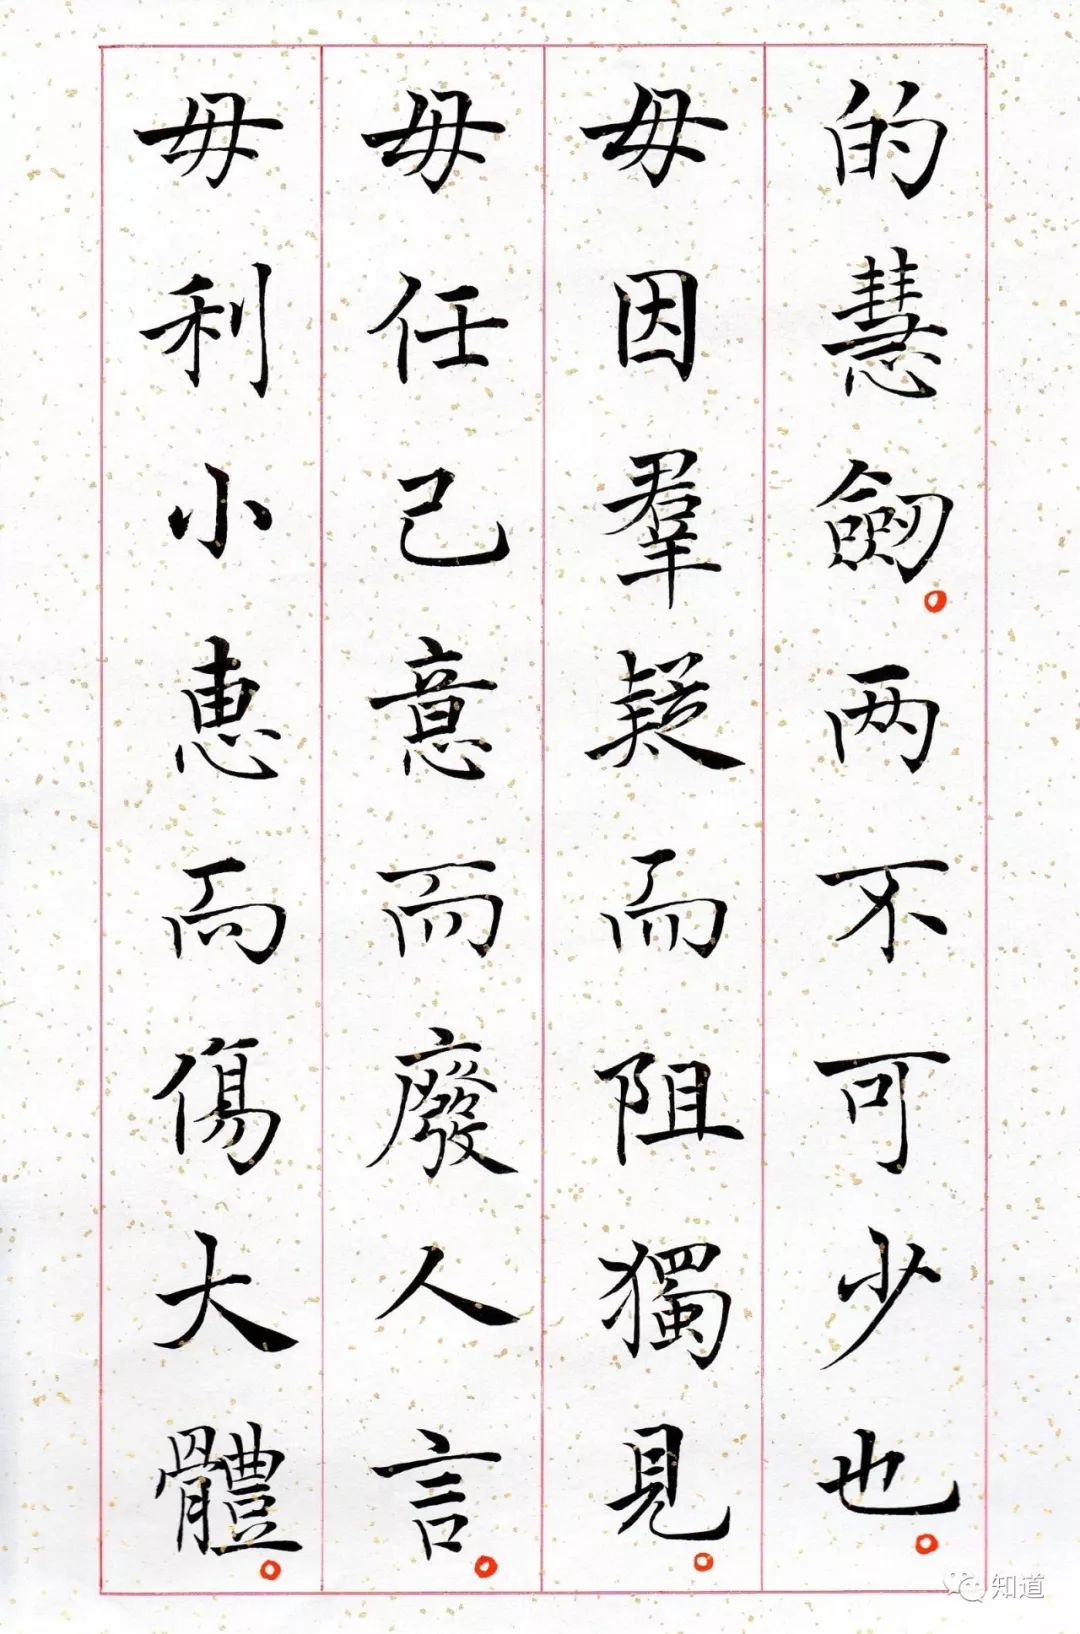 的慧劒。两不可少也。
毋因羣疑而阻獨見。
毋任己意而廢人言。
毋利小惠而傷大體。
知道